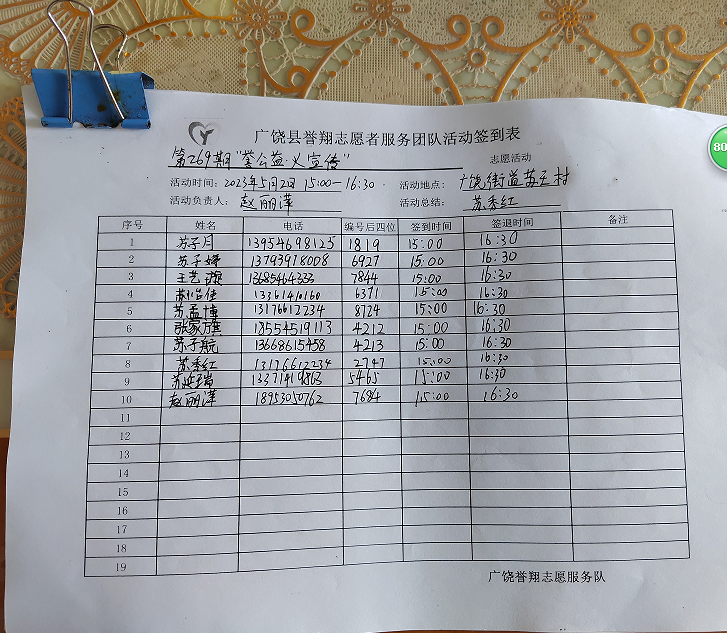 广饶县誉翔志愿者服务团队活动签到表
第269期"公益·义宣传" 志愿活动
活动时间：2023年5月2日 15:00-16:30 活动地点：广饶街道苏王村
活动负责人：赵丽萍 活动总结：苏秀红
序号 姓名 电话 编号后四位 签到时间 签退时间 备注
1 苏子月 13954698125 1819 15:00 16:30
2 苏子婷 13793978008 6927 15:00 16:30
3 王艺璇 13685464333 7844 15:00 16:30
4 13361410160 6371 15:00 16:30
5 苏孟博 13176612234 8724 15:00 16:30
6 张家旗 18554519113 4212 15:00 16:30
7 苏子航 13668615458 4213 15:00 16:30
8 苏秀红 13176612234 2747 15:00 16:30
9 苏延瑞 5465 15:00 16:30
10 赵丽萍 18953050762 7694 15:00 16:30
11
12
13
14
15
16
17
18
19
广饶誉翔志愿服务队
80